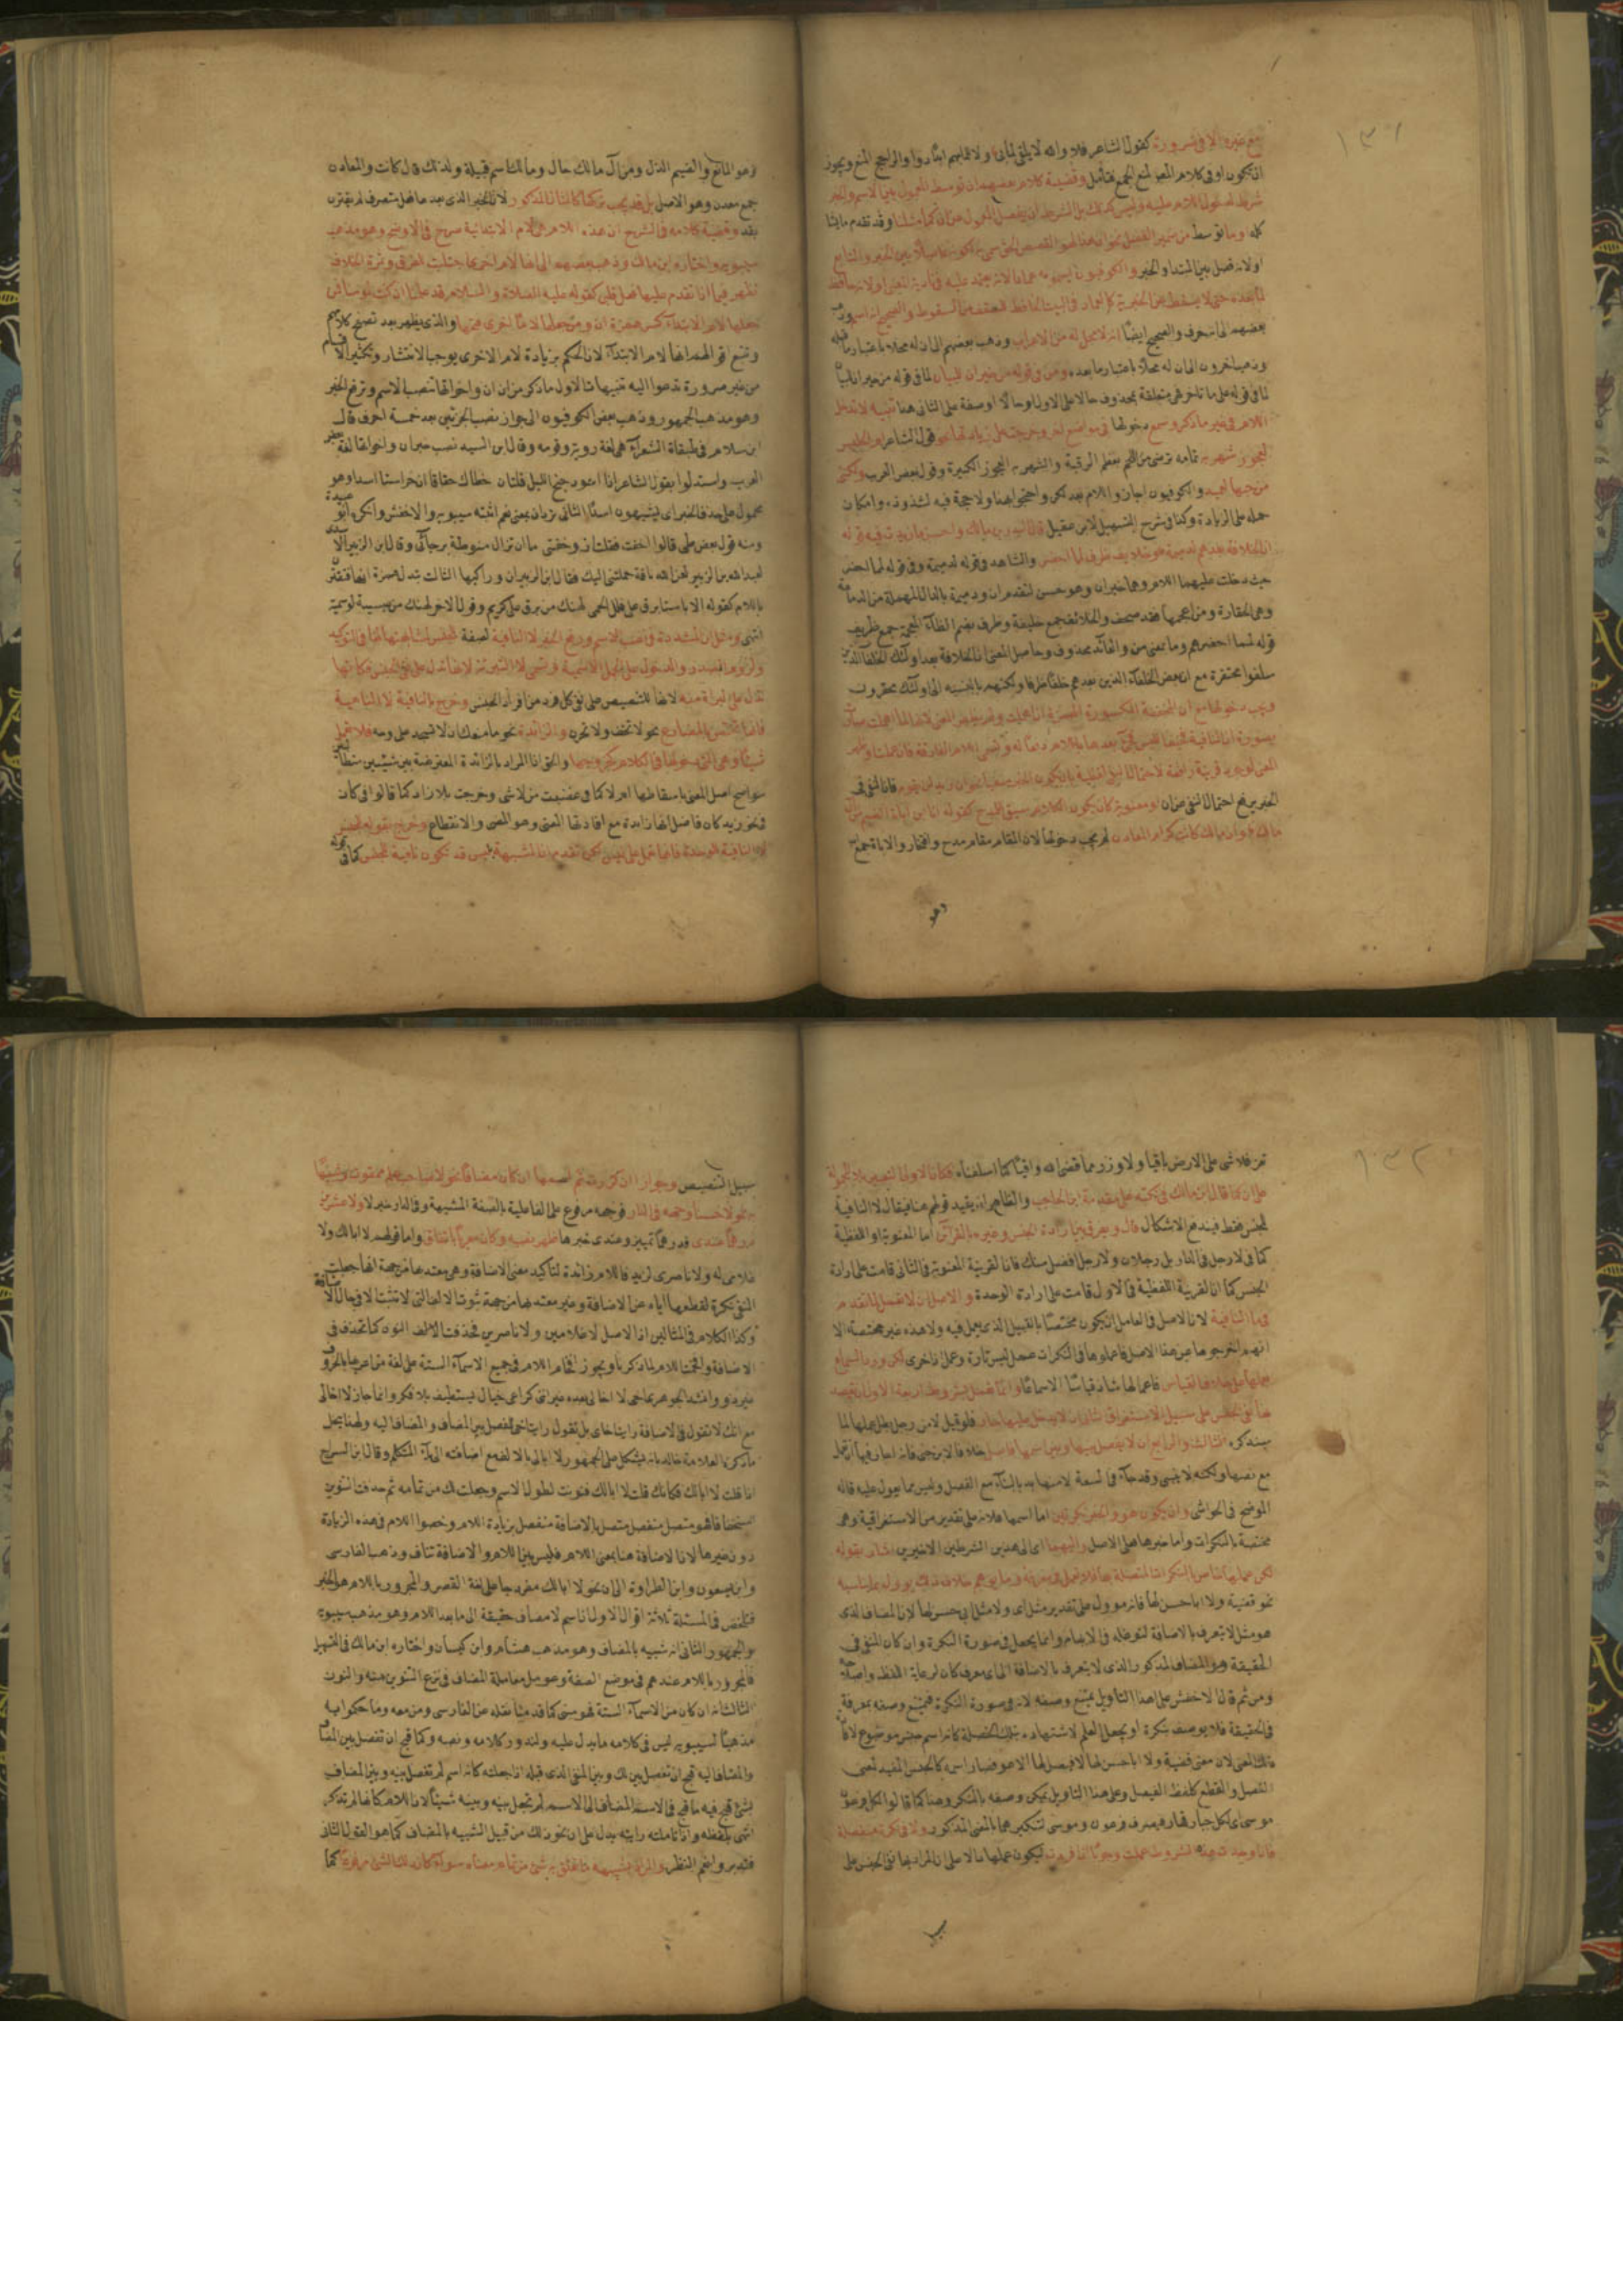 ١٣١
مع غيره الا في ضرورة كقول الشاعر فلا والله لا يلفى لما بي ولا للما بهم ابدا دواء والراجح المنع ويجوز
ان تكون او في كلام المص لمنع الجمع فتأمل وقضية كلام بعضهم ان توسط المعمول بين الاسم والخبر
شرط لدخول اللام عليه وليس كذلك بل الشرط ان يفصل المعمول من ان كما مثلنا وقد تقدم ما يتنا
كله او ما توسط من ضمير الفصل نحو ان هذا لهو القصص الحق سمي به لكونه فاصلا بين الخبر والتابع
او لانه فصل بين المبتدا والخبر والكوفيون يسمونه عمادا لانه يعتمد عليه في تأدية المعنى او لانه حافظ
لما بعده حتى لا يسقط عن الخبرية كالعماد في البيت الحافظ للسقف من السقوط والصحيح انه اسم وذهب
بعضهم الى انه حرف والصحيح ايضا انه لا محل له من الاعراب وذهب بعضهم الى ان له محلا باعتبار ما قبله
وذهب اخرون الى ان له محلا باعتبار ما بعده ومن في قوله من خبر ان للبيان لما في قوله
لما في قوله على ما تأخر هي متعلقة بمحذوف حالا على الاول وحالا او صفة على الثاني هنا تنبيه لا تدخل
اللام في غير ما ذكر وسمع دخولها في مواضع اخر وخرجت على زيادتها نحو قول الشاعر ام الحليس
لعجوز شهربه تمامه ترضى من اللحم بعظم الرقبة والشهربه العجوز الكبيرة وقول بعض العرب ولكنني
من حبها لعميد والكوفيون اجازوا اللام بعد لكن واحتجوا بهذا ولا حجة فيه لشذوذه وامكان
حمله على الزيادة وكذا في شرح التسهيل لابن عقيل قال البدر بن مالك واحسن ما زيدت فيه قوله
ان الخلافة بعدهم لدميمة وخلايف ظرف لمما احقر والشاهد في قوله لدميمة وفي قوله لمما احقر
حيث دخلت عليهما اللام وهما خبران وهو حسن لتقدم ان ودميمة بالدال المهملة من الدمامة
وهي الحقارة ومن اعجمها فقد صحف والخلائف جمع خليفة وظرف بضم الظاء المعجمة جمع ظريف
قوله لمما احقرهم وما بمعنى من والعائد محذوف وحاصل المعنى ان الخلافة بعد اولئك الخلفاء الذين
سلفوا محتقرة مع ان بعض الخلفاء الذين بعدهم خلفا ظرفا ولكنهم بالنسبة الى اولئك محقرون
ويجب دخولها مع ان المخففة المكسورة الهمزة اذا اهملت ولم يظهر المعنى لانها لما اهملت صارت
بصورة ان النافية فيخاف اللبس فيؤتى بعدها باللام دفعا له وتسمى اللام الفارقة فان عملت او ظهر
المعنى لوجود قرينة رافعة لاحتمال النفي لفظية بان يكون الخبر منفيا نحو ان زيد لن يقوم فان النفي في
الخبر يرفع احتمال النفي عن ان او معنوية كان يكون الكلام سيق للمدح كقوله انا ابن اباة الضيم من آل
مالك وان مالك كانت كرام المعادن لم يجب دخولها لان المقام مقام مدح وافتخار والاباة جمع
وهو
وهو المانع والضيم الذل ومن آل مالك حال ومالك اسم قبيلة ولذلك قال كانت والمعادن
جمع معدن وهو الاصل بل قد يجب تركها كالمثال المذكور لان الخبر الذي بعدها فعل متصرف لم يقترن
بقد وقضية كلامه في الشرح ان هذه اللام هي لام الابتدائية صرح في الاوضح وهو مذهب
سيبويه واختاره ابن مالك وذهب بعضهم الى انها لام اخرى اجتلبت للفرق وثمرة الخلاف
تظهر فيما اذا تقدم عليها فعل قلبي كقوله عليه الصلاة والسلام قد علمنا ان كنت لمومنا فمن
جعلها لام الابتداء كسر همزة ان ومن جعلها لاما اخرى فتحها والذي يظهر بعد تصفح كلامهم
وتتبع اقوالهم انها لام الابتداء لان الحكم بزيادة لام اخرى يوجب الانتشار وتكثير الاقسام
من غير ضرورة تدعوا اليه تنبيهات الاول ما ذكر من ان ان واخواتها تنصب الاسم وترفع الخبر
وهو مذهب الجمهور وذهب بعض الكوفيون الى جواز نصب الجزئين بعد خمسة احرف قال
ابن سلام في طبقاة الشعراء هي لغة روبة وقومه وقال ابن السيد نصب خبر ان واخواتها لغة بعض
العرب واستدلوا بقول الشاعر اذا اسود جنح الليل فلتات خطاك خفافا ان حراسنا اسدا وهو
محمول على حذف الخبر اي يشبهون اسدا الثاني ترد ان بمعنى نعم اثبته سيبويه والاخفش وانكره ابو عبيدة
لعبد الله بن الزبير لعن الله ناقة حملتني اليك فقال ابن الزبير ان وراكبها الثالث تبدل همزة ان هاء فتقترن
باللام كقوله الا يا سنا برق على قلل الحمى لهنك من برق علي كريم وقول الاخر لهنك من عبسية لوسيمة
انتهى ومثل ان المشددة في نصب الاسم ورفع الخبر لا النافية لصفة الجنس لمشابهتها لها في التوكيد
ولزوم الصدر والدخول على الجمل الاسمية وتسمى لا التبرئة لانها تدل على نفي الجنس فكانها
تدل على البراءة منه لانها للتنصيص على نفي كل فرد من افراد الجنس وخرج بالنافية لا الناهية
فانها تختص بالمضارع نحو لا تخف ولا تحزن والزائدة نحو ما منعك ان لا تسجد فلا تعمل
شيئا وهي التي دخولها في الكلام كخروجها والحق ان المراد بالزائدة المعترضة بين شيئين متطالبين
سواء صح اصل المعنى باسقاطها ام لا كما في غضبت من لا شي وخرجت بلا زاد كما قالوا في كان
في نحو زيد كان فاضل انها زائدة مع افادتها المعنى وهو المضي والانقطاع وخرج بقوله للجنس
لا النافية للوحدة فانها تعمل عمل ليس لكن تقدم ان المشبهة بليس قد تكون نافية للجنس كما في قوله
١٣٢
تعز فلا شي على الارض باقيا ولا وزر مما قضى الله واقيا كما اسلفناه فكان الاولى التعبير بلا المحمولة
على ان كما قال ابن مالك في نكته على مقدمة ابن الحاجب والظاهر انه يقيد قولهم هنا فيقال لا النافية
للجنس فقط فيندفع الاشكال قال ويعرف بيان ارادة الجنس وغيره بالقرائن اما المعنوية او اللفظية
كما في لا رجل في الدار بل رجلان ولا رجل افضل منك فان القرينة المعنوية في الثاني قامت على ارادة
الجنس كما ان القرينة اللفظية في الاول قامت على ارادة الوحدة والاصل ان لا تعمل لما تقدم
في ما النافية لان الاصل في العامل ان يكون مختصا بالقبيل الذي يعمل فيه ولا هذه غير مختصة الا
انهم اخرجوها عن هذا الاصل فاعملوها في النكرات عمل ليس تارة وعمل ان اخرى لكن ورد السماع
بعملها على خلاف القياس فاعمالها شاذ قياسا لا سماعا وانما تعمل بشروط اربعة الاول ان يقصد
بها نفي الجنس على سبيل الاستغراق الثاني ان لا يدخل عليها جار فلو قيل لا من رجل بطل عملها لما
سيذكره الثالث والرابع ان لا يفصل بينها وبين اسمها فاصل خلافا لابن جني فانه اجاز فيها ان تعمل
مع نصبها ولكنه لا يبنى وقد جاء في السعة لا منها بد بالبناء مع الفصل وليس مما يعول عليه قاله
الموضح في الحواشي وان يكون هو والخبر نكرتين اما اسمها فلانه على تقدير من الاستغراقية وهي
مختصة بالنكرات واما خبرها فعلى الاصل واليهما اي الى هذين الشرطين الاخيرين اشار بقوله
لكن عملها خاص بالنكرات المتصلة بها فلا تعمل في معرفة وما يوهم خلاف ذلك يوول بما يناسبه
نحو قضية ولا ابا حسن لها فانه موول على تقدير مثل اي ولا مثل ابي حسن لها لان المضاف الذي
هو مثل لا يتعرف بالاضافة لتوغله في الابهام وانما يجعل في صورة النكرة وان كان المنفي في
الحقيقة هو المضاف المذكور الذي لا يتعرف بالاضافة الى اي معرف كان لرعاية اللفظ واصلاحه
ومن ثم قال الاخفش على هذا التاويل يمتنع وصفه لانه في صورة النكرة فيمتنع وصفه بمعرفة
في الحقيقة فلا يوصف بنكرة او يجعل العلم لاشتهاره بتلك الخصلة كانه اسم جنس موضوع لافادة
ذلك المعنى لان معنى قضية ولا ابا حسن لها لا فيصل لها الا هو فصار اسمه كالجنس المفيد لمعنى
الفصل والقطع كلفظ الفيصل وعلى هذا التاويل يمكن وصفه بالمنكر وهذا كما قالوا لكل فرعون
موسى اي لكل جبار قهار فيصرف فرعون وموسى لتنكيرهما بالمعنى المذكور ولا في نكرة منفصلة
فاذا وجدت هذه الشروط عملت وجوبا ان افردت ليكون عملها ان الاصلي ان المراد بها نفي الجنس على
سبيل التنصيص وجوازا ان كررت ثم اسمها ان كان مضافا نحو لا صاحب علم ممقوت وشبيها
به نحو لا حسنا وجهه في الدار فوجهه مرفوع على الفاعلية بالصفة المشبهة وفي الدار خبر لا ولا عشرين
درهما عندي فدرهما تمييز وعندي خبرها ظهر نصبه وكان معربا باتفاق واما قولهم لا ابا لك ولا
غلامي له ولا ناصري لزيد فاللام زائدة لتاكيد معنى الاضافة وهي معتد بها من جهة انها جعلت
المنفي نكرة لقطعها اياه عن الاضافة وغير معتد بها من جهة ثبوت الالف التي لا تثبت الا في حال الاضافة
وكذا الكلام في المثالين اذ الاصل لا غلامين ولا ناصرين فحذفت النون كما تحذف في
الاضافة واقحمت اللام لما ذكرنا ويجوز اقحام اللام في جميع الاسماء الستة على لغة من اعربها بالحروف
مع انك لا تقول في الاضافة رايت اخاي بل تقول رايت اخي للفصل بين المضاف والمضاف اليه وبهذا ينحل
ما ذكره العلامة خالد بانه يشكل على الجمهور لا ابا لي بالالف مع اضافته الى ياء المتكلم وقال ابن السراج
اذا قلت لا ابا لك فكانك قلت لا ابا لك فنونت لطول الاسم وجعلت لك من تمامه ثم حذفت التنوين
استخفافا فهو متصل منفصل متصل بالاضافة منفصل بزيادة اللام وخصوا اللام في هذه الزيادة
دون غيرها لان الاضافة هنا بمعنى اللام فليس بين اللام والاضافة تناف وذهب الفارسي
وابن يسعون وابن الطراوة الى ان نحو لا ابا لك مفرد جاء على لغة القصر والمجرور باللام هو الخبر
فتلخص في المسئلة ثلاثة اقوال الاول انه اسم لا مضاف حقيقة الى ما بعد اللام وهو مذهب سيبويه
والجمهور الثاني انه شبيه بالمضاف وهو مذهب هشام وابن كيسان واختاره ابن مالك في التسهيل
فالمجرور باللام عندهم في موضع الصفة وعومل معاملة المضاف في نزع التنوين منه والنون
الثالث انه ان كان من الاسماء الستة فهو مبني كما قدمنا نقله عن الفارسي ومن معه وما حكوا به
مذهبا لسيبويه ليس في كلامه ما يدل عليه ولنذكر كلامه ونصه وكما قبح ان تفصل بين المضاف
والمضاف اليه قبح ان تفصل بين لك وبين المنفي الذي قبله اذا جعلته كانه اسم لم تفصل بينه وبين المضاف
بشئ قبح فيه ما قبح في الاسم المضاف الى الاسم لم تجعل بينه وبينه شيئا لان اللام كانها لم تذكر
انتهى بلفظه واذا تاملته رايته يدل على ان نحو ذلك من قبيل الشبيه بالمضاف كما هو القول الثاني
فتدبر وانعم النظر والمراد بشبيهه ما تعلق به شئ من تمام معناه سواء كان ذلك الشئ مرفوعا كما